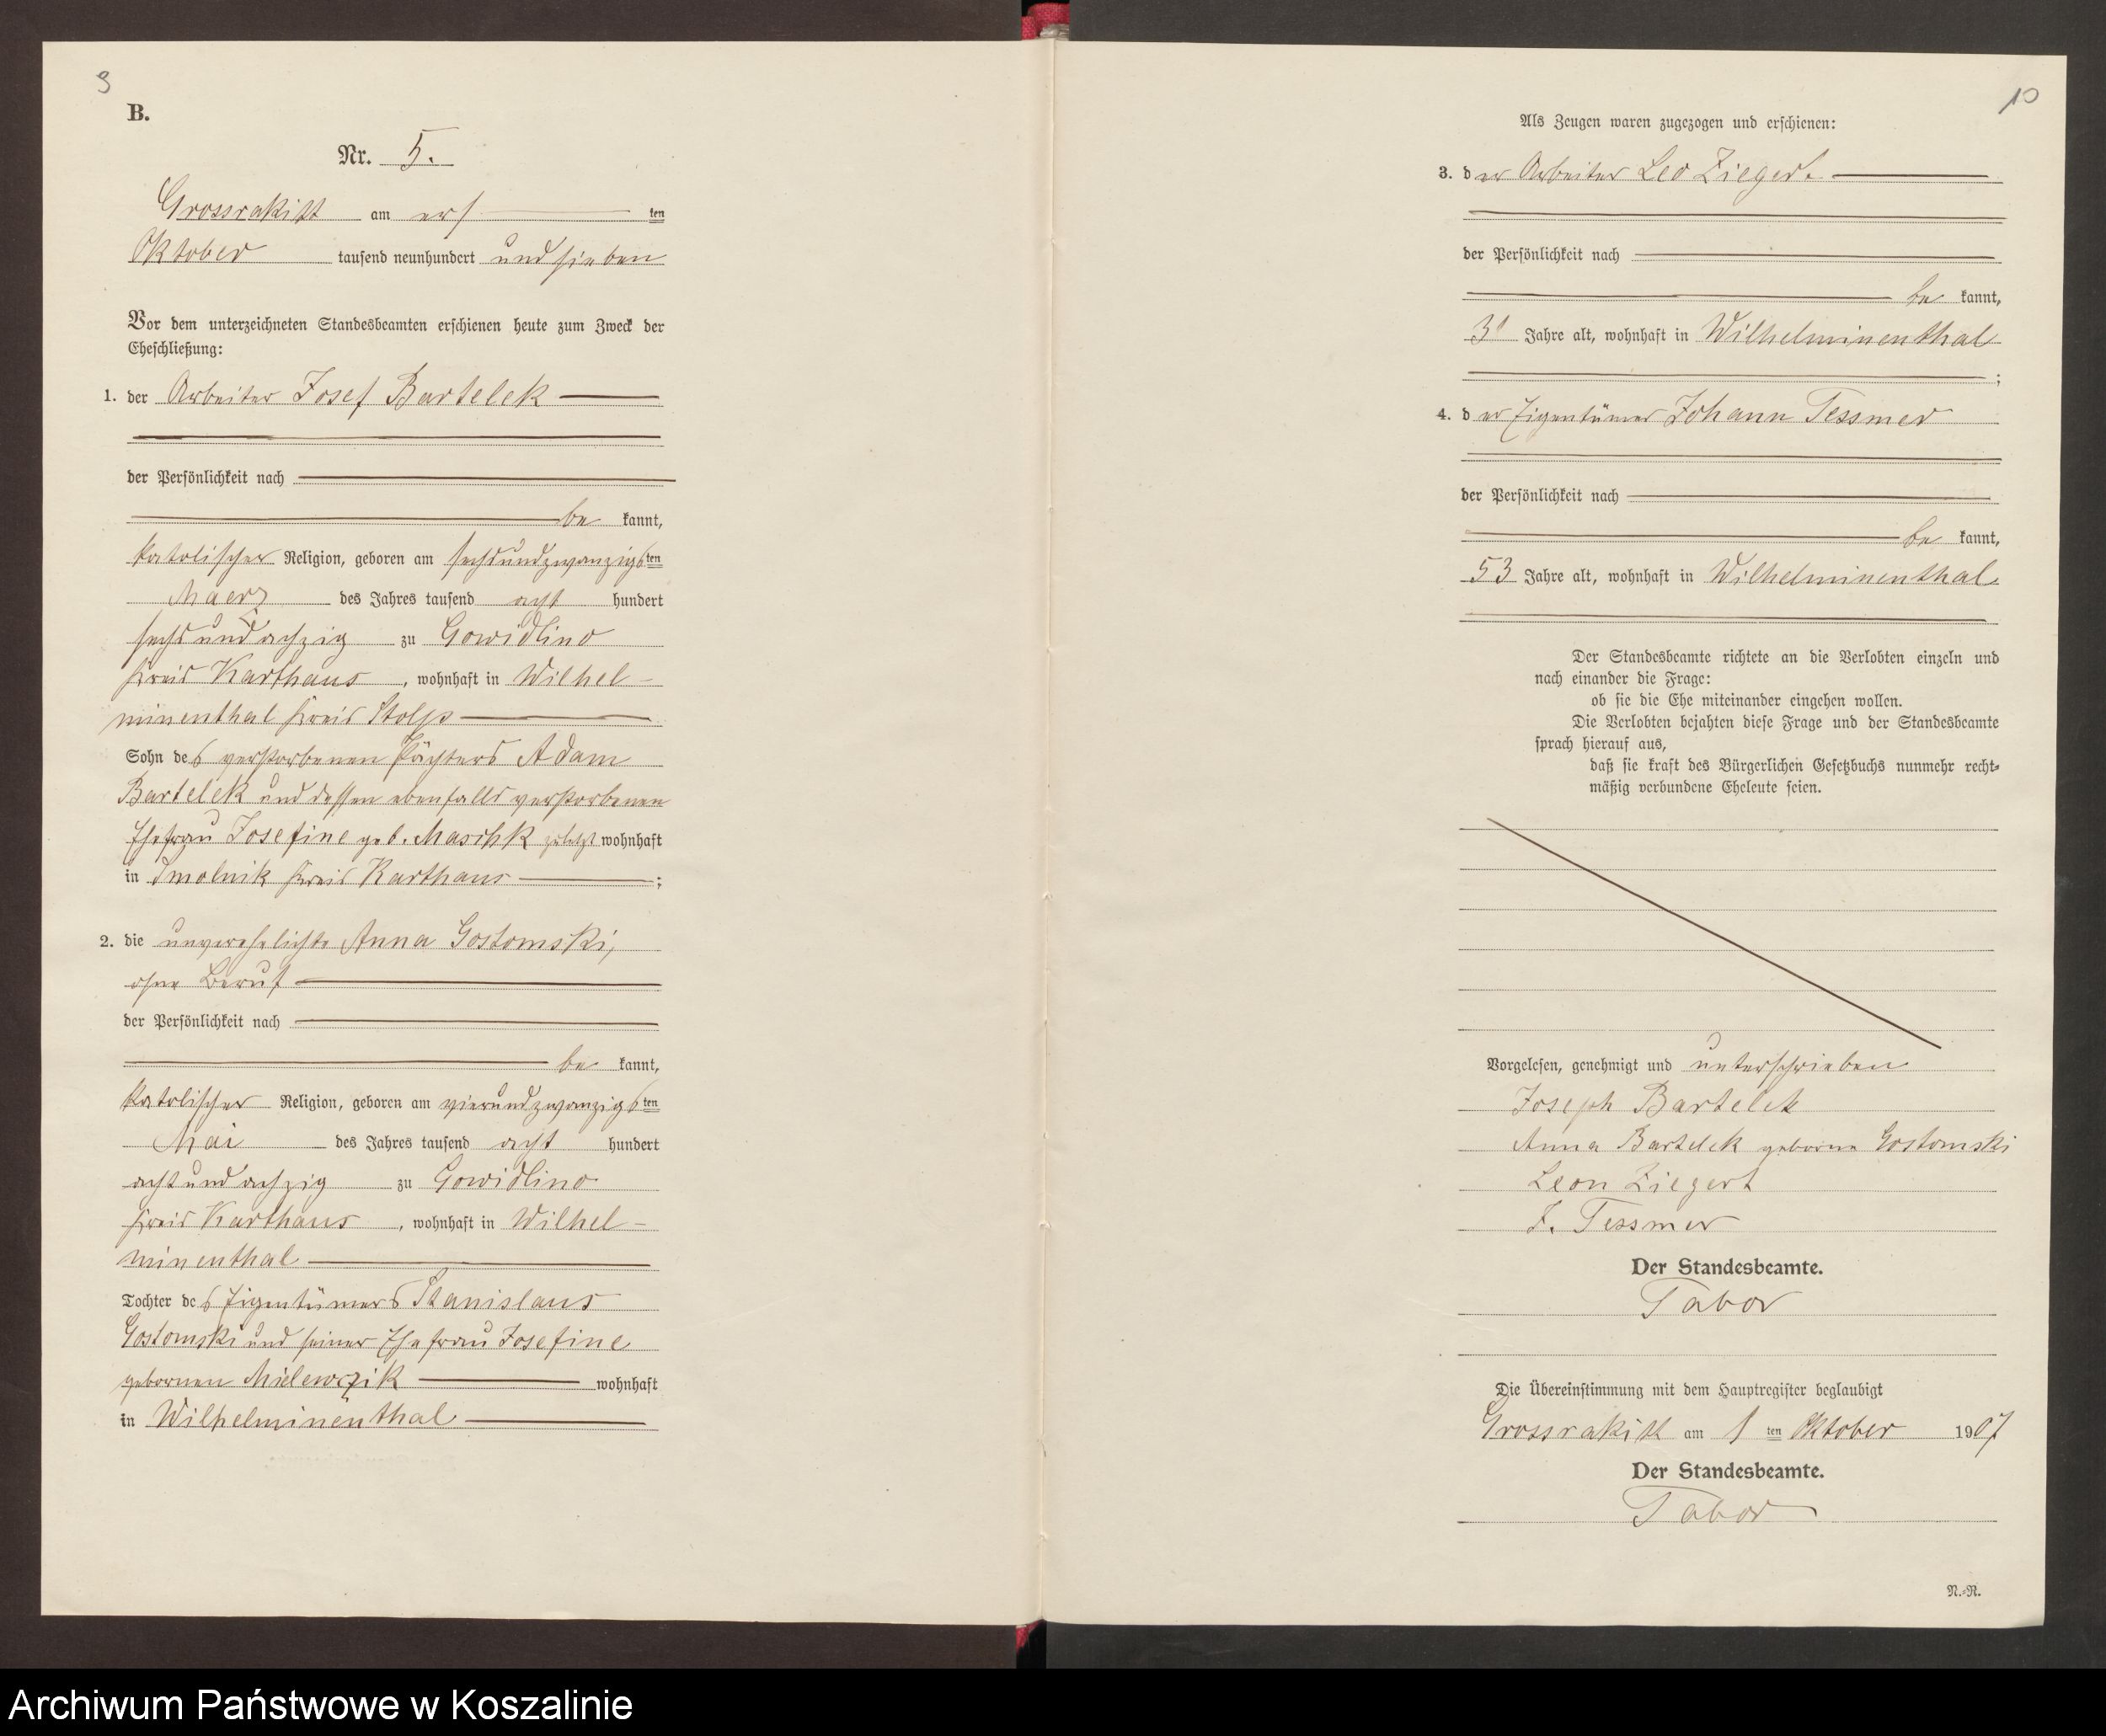 9
B.
Nr. 5.
Grossrakitt am ersten
Oktober tausend neunhundert und sieben
Vor dem unterzeichneten Standesbeamten erschienen heute zum Zweck der
Eheschließung:
1. der Arbeiter Josef Bartelek
der Persönlichkeit nach
be kannt,
katolischer Religion, geboren am sechsundzwanzigsten
Maerz des Jahres tausend acht hundert
sechsundachzig zu Gowidlino
Kreis Karthaus, wohnhaft in Wilhel-
minenthal Kreis Stolp
Sohn des verstorbenen Pächters Adam
Bartelek und dessen ebenfalls verstorbenen
Ehefrau Josefine geb. Maschk zuletzt wohnhaft
in Smolnik Kreis Karthaus ;
2. die unverehelichte Anna Gostomski,
ohne Beruf
der Persönlichkeit nach
be kannt,
katolischer Religion, geboren am vierundzwanzigsten
Mai des Jahres tausend acht hundert
achtundachzig zu Gowidlino
Kreis Karthaus, wohnhaft in Wilhel-
minenthal
Tochter des Eigentümers Stanislaus
Gostomski und seiner Ehefrau Josefine
gebornen Mielewczik wohnhaft
in Wilhelminenthal
10
Als Zeugen waren zugezogen und erschienen:
3. der Arbeiter Leo Ziegert
der Persönlichkeit nach
be kannt,
31 Jahre alt, wohnhaft in Wilhelminenthal
;
4. der Eigentümer Johann Tessmer
der Persönlichkeit nach
be kannt,
53 Jahre alt, wohnhaft in Wilhelminenthal
Der Standesbeamte richtete an die Verlobten einzeln und
nach einander die Frage:
ob sie die Ehe miteinander eingehen wollen.
Die Verlobten bejahten diese Frage und der Standesbeamte
sprach hierauf aus,
daß sie kraft des Bürgerlichen Gesetzbuchs nunmehr recht-
mäßig verbundene Eheleute seien.
Vorgelesen, genehmigt und unterschrieben
Joseph Bartelek
Anna Bartelek geborne Gostomski
Leon Ziegert
J. Tessmer
Der Standesbeamte.
Tabor
Die Übereinstimmung mit dem Hauptregister beglaubigt
Grossrakitt am 1 ten Oktober 1907
Der Standesbeamte.
Tabor
N.-R.
Archiwum Państwowe w Koszalinie